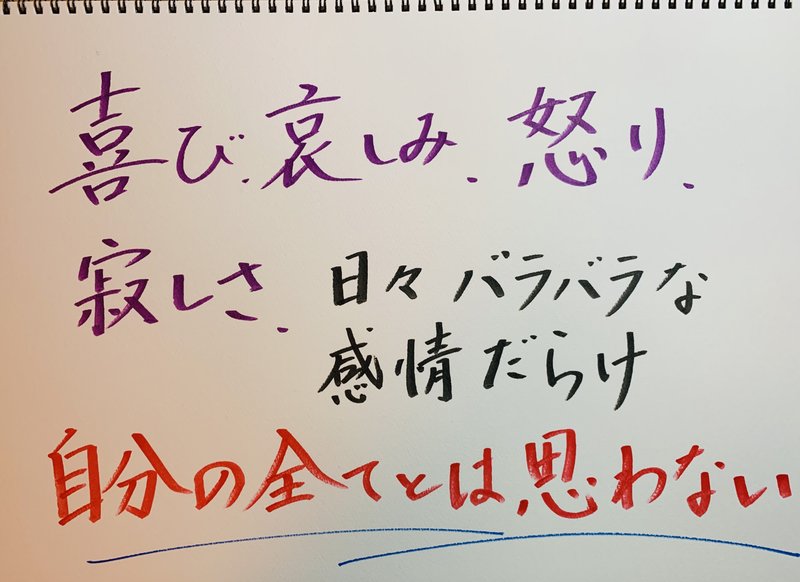 喜び、哀しみ、怒り、
寂しさ、日々バラバラな
感情だらけ
自分の全てとは思わない